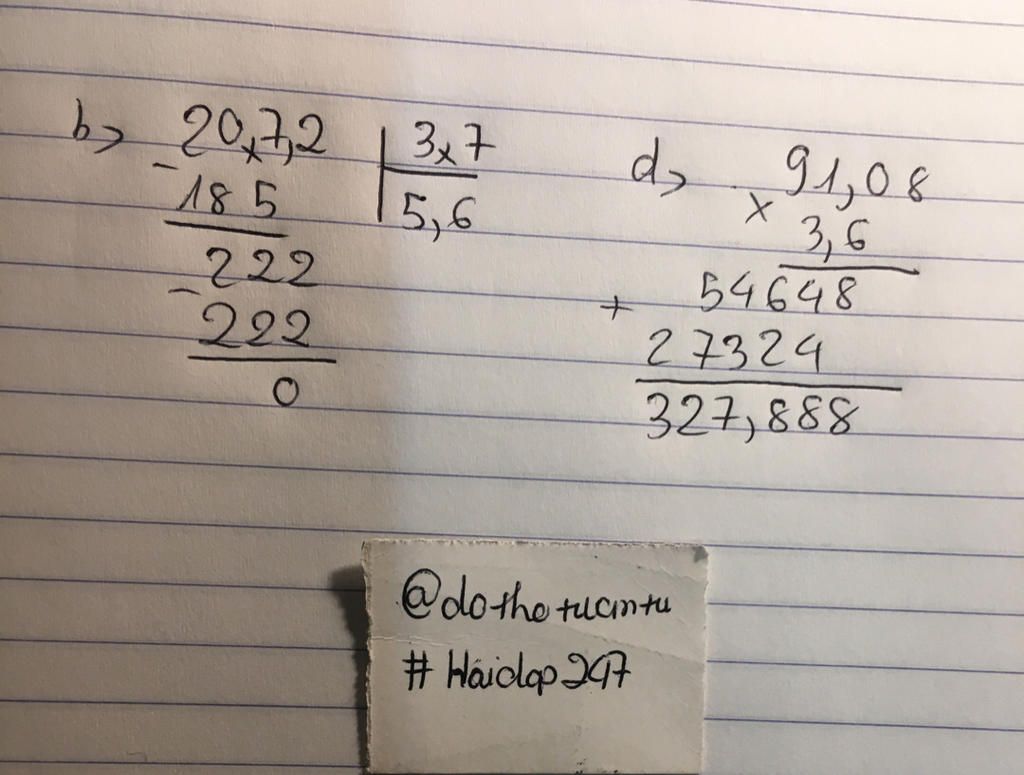 b> 20,7,2 | 3,7
- 185 | 5,6
222
- 222
0
d> 91,08
x 3,6
+ 54648
27324
327,888
@dothetuantu
# Hoidap247